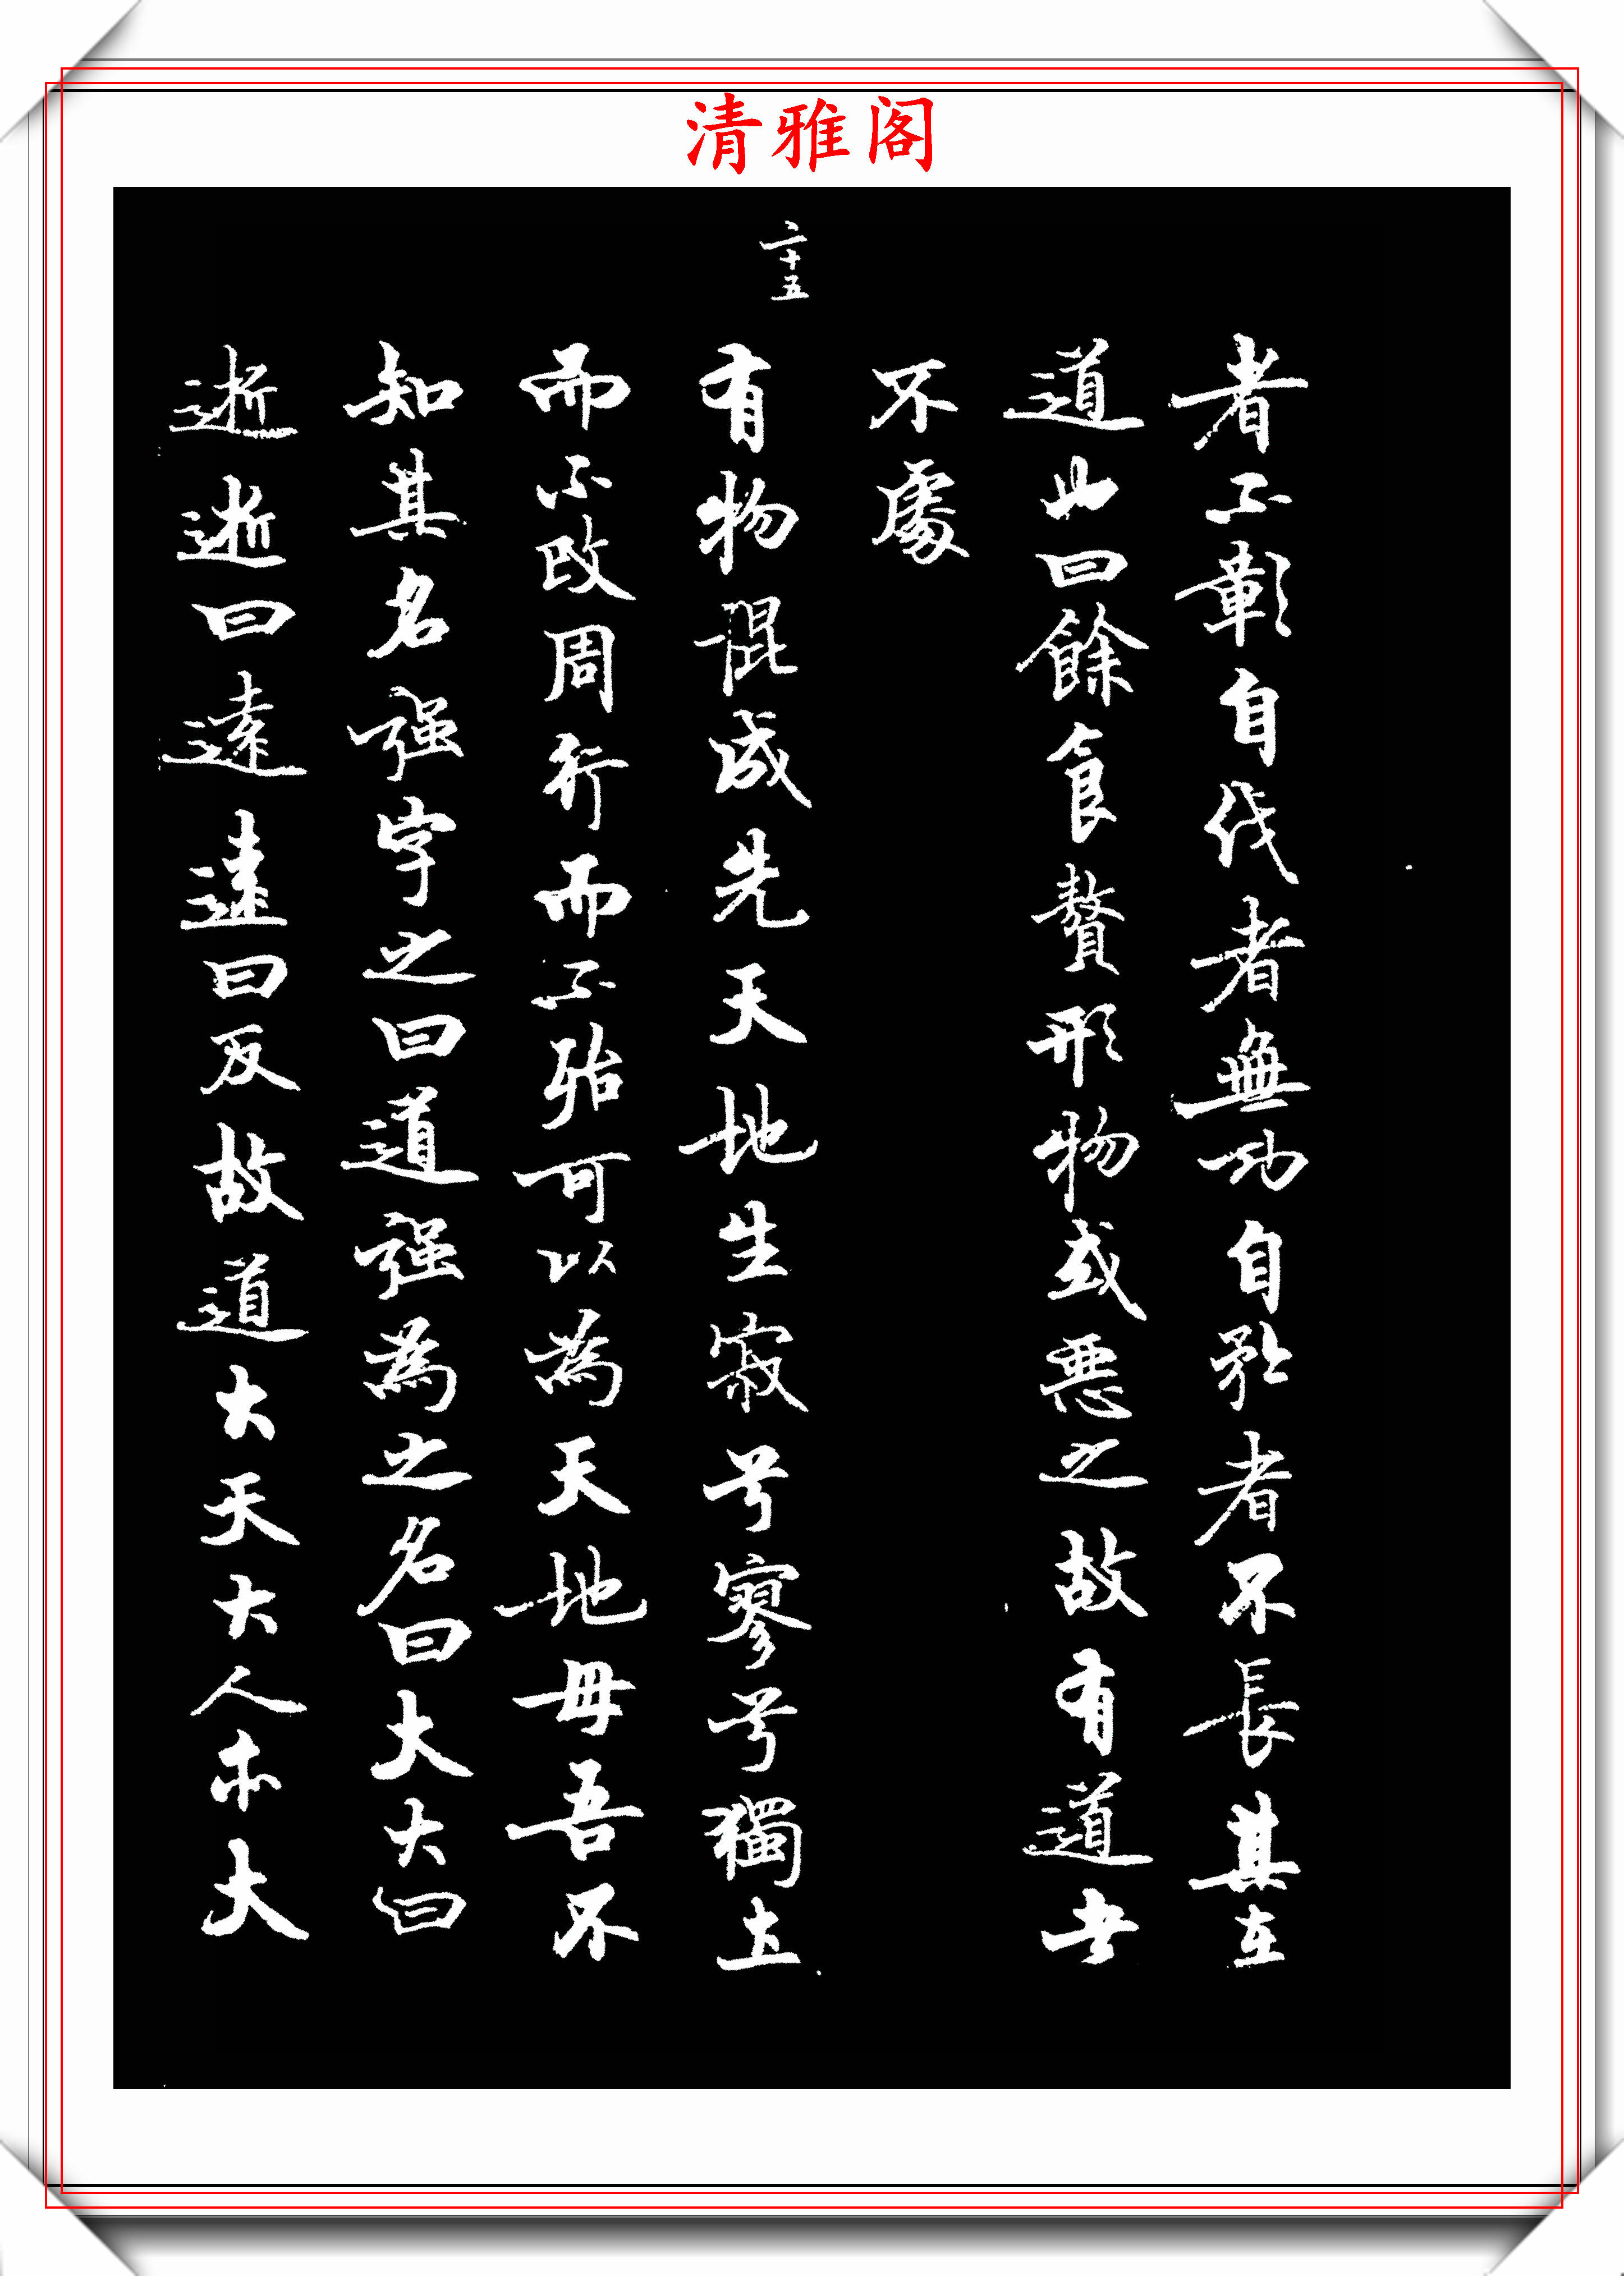 清雅阁
者不彰自伐者無功自矜者不長其在
道也曰餘食贅形物或惡之故有道者
不處
二十五
有物混成先天地生寂兮寥兮獨立
而不改周行而不殆可以為天地母吾不
知其名强字之曰道强為之名曰大大曰
逝逝曰遠遠曰反故道大天大人亦大